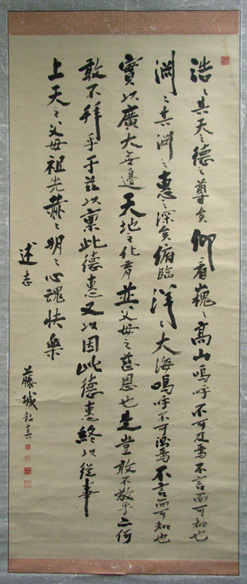 浩々其天之德之尊矣仰看巍々高山嗚呼不可及焉不言而可知也
淵々其淵之惠之深矣俯臨洋々大海嗚呼不可焉不言而可知也
實以廣大無邊天地之化育並父母之慈恩也先堂敢不敬乎何
敢不拜乎于茲以稟此德惠又以因此德惠終以從事
上天之父母祖先赫々明々心魂快樂
述志
藤城